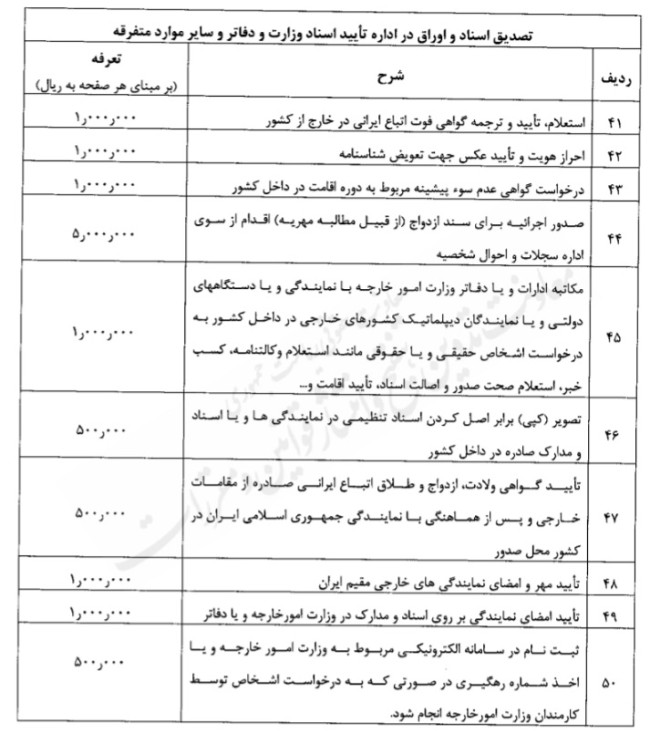 تصدیق اسناد و اوراق در اداره تأیید اسناد وزارت و دفاتر و سایر موارد متفرقه
ردیف شرح تعرفه
(بر مبنای هر صفحه به ریال)
۴۱ استعلام، تأیید و ترجمه گواهی فوت اتباع ایرانی در خارج از کشور ۱٫۰۰۰٫۰۰۰
۴۲ احراز هویت و تأیید عکس جهت تعویض شناسنامه ۱٫۰۰۰٫۰۰۰
۴۳ درخواست گواهی عدم سوء پیشینه مربوط به دوره اقامت در داخل کشور ۱٫۰۰۰٫۰۰۰
۴۴ صدور اجرائیه برای سند ازدواج (از قبیل مطالبه مهریه) اقدام از سوی ۵٫۰۰۰٫۰۰۰
اداره سجلات و احوال شخصیه
۴۵ مکاتبه ادارات و یا دفاتر وزارت امور خارجه با نمایندگی و یا دستگاههای ۱٫۰۰۰٫۰۰۰
دولتی و یا نمایندگان دیپلماتیک کشورهای خارجی در داخل کشور به
درخواست اشخاص حقیقی و یا حقوقی مانند استعلام وکالتنامه، کسب
خبر، استعلام صحت صدور و اصالت اسناد، تأیید اقامت و...
۴۶ تصویر (کپی) برابر اصل کردن اسناد تنظیمی در نمایندگی ها و یا اسناد ۵۰۰٫۰۰۰
و مدارک صادره در داخل کشور
۴۷ تأیید گواهی ولادت، ازدواج و طلاق اتباع ایرانی صادره از مقامات ۵۰۰٫۰۰۰
خارجی و پس از هماهنگی با نمایندگی جمهوری اسلامی ایران در
کشور محل صدور
۴۸ تأیید مهر و امضای نمایندگی های خارجی مقیم ایران ۱٫۰۰۰٫۰۰۰
۴۹ تأیید امضای نمایندگی بر روی اسناد و مدارک در وزارت امورخارجه و یا دفاتر ۱٫۰۰۰٫۰۰۰
۵۰ ثبت نام در سامانه الکترونیکی مربوط به وزارت امور خارجه و یا ۵۰۰٫۰۰۰
اخذ شماره رهگیری در صورتی که به درخواست اشخاص توسط
کارمندان وزارت امورخارجه انجام شود.